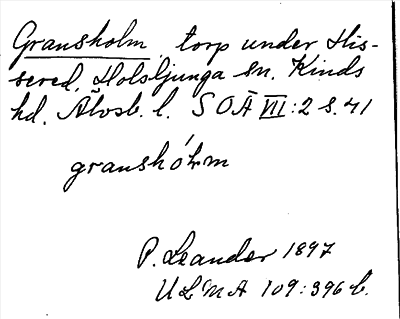 Gransholm, torp under His-
sered, Holsljunga sn. Kinds
hd. Älvsb. l. SOÄ VII:2 s. 41
granshólm
P. Leander 1897
ULMA 109:396 b.